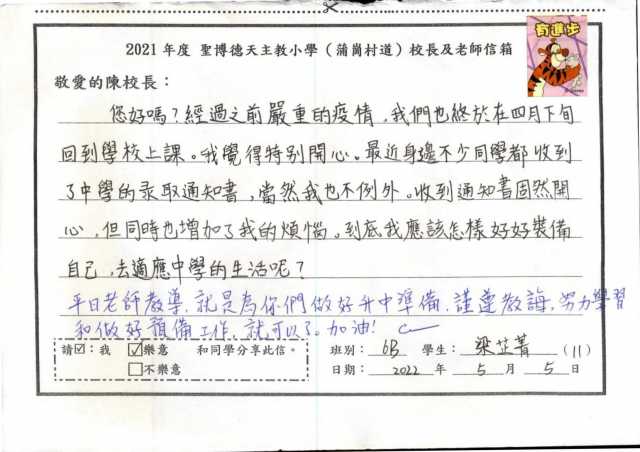 有進步
2021 年度 聖博德天主教小學（蒲崗村道）校長及老師信箱
敬愛的陳校長：
您好嗎？經過之前嚴重的疫情，我們也終於在四月下旬
回到學校上課。我覺得特別開心。最近身邊不少同學都收到
了中學的录取通知書，當然我也不例外。收到通知書固然開
心，但同時也增加了我的煩惱。到底我應該怎樣好好裝備
自己，去適應中學的生活呢？
平日老師教導，就是為你們做好升中準備，謹遵教誨，努力學習
和做好預備工作，就可以了。加油！
請☑：我 ☑樂意 和同學分享此信。 班別： 6B 學生： 梁芷菁 (11)
□不樂意 日期： 2022 年 5 月 5 日